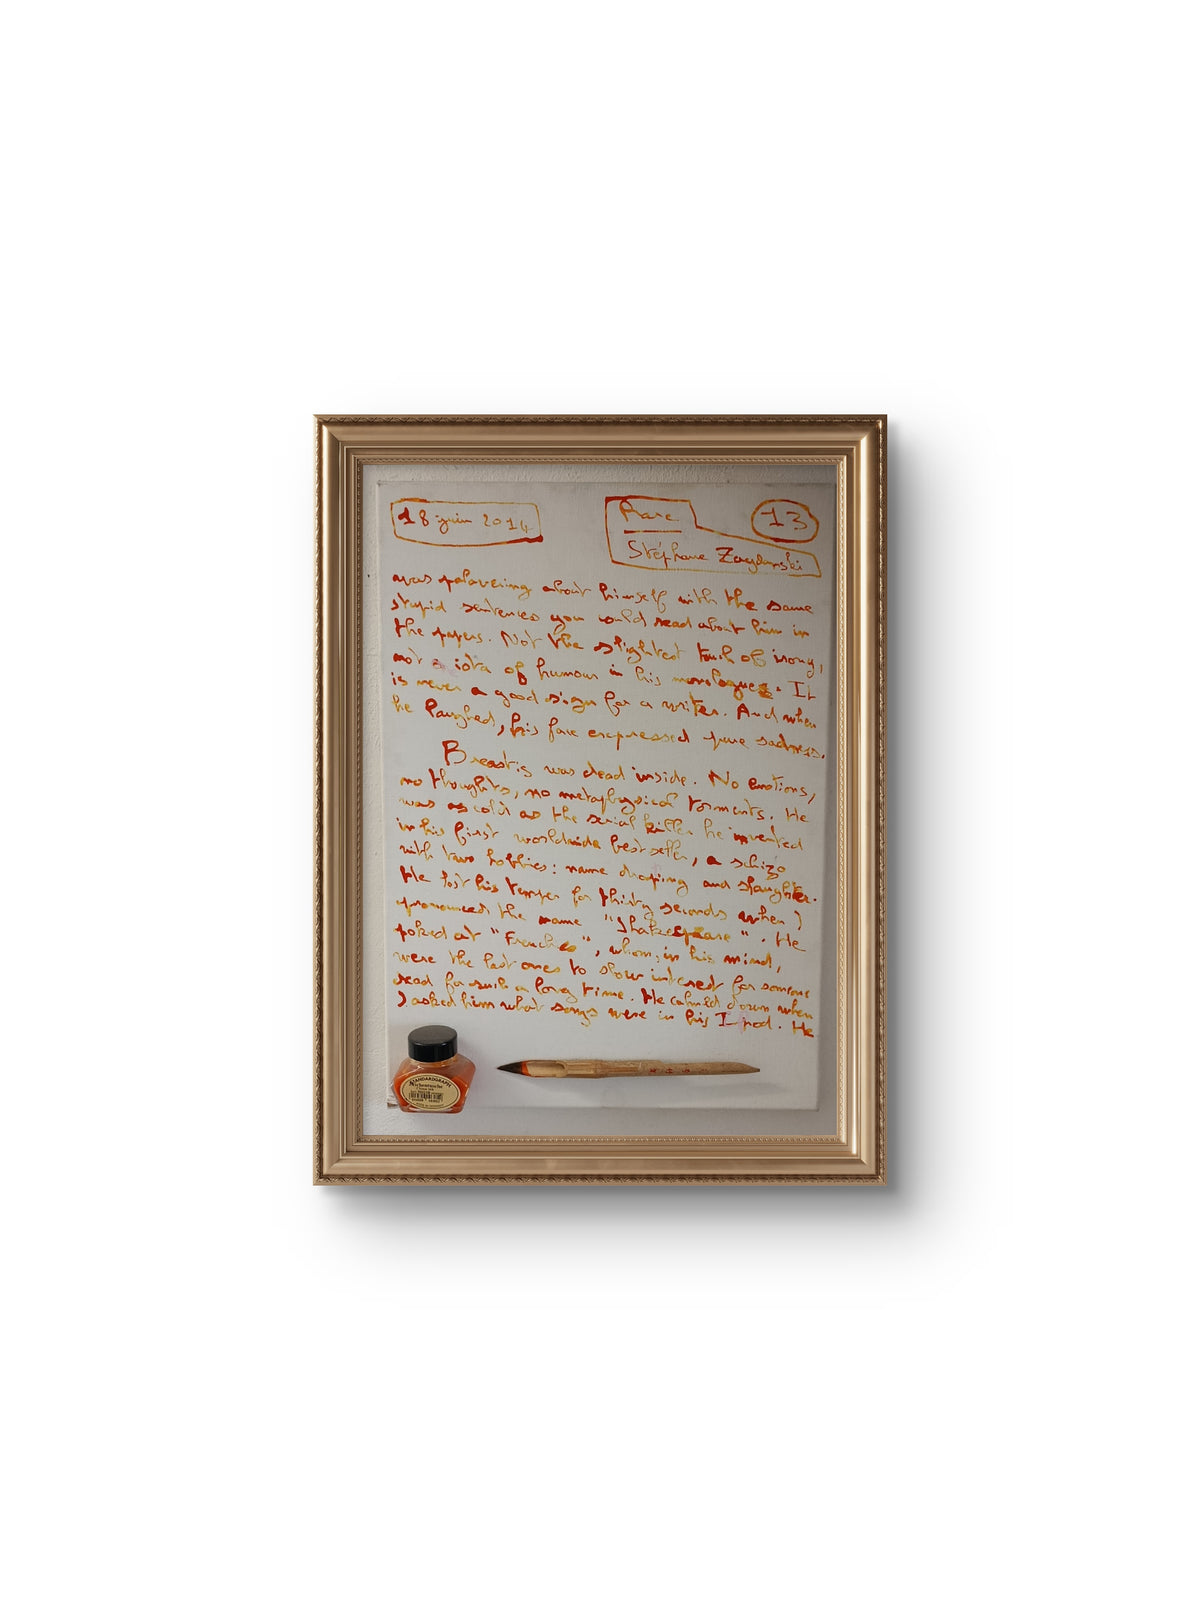 18 juin 2014
Rare
13
Stéphane Zagdanski
was palavering about himself with the same
stupid sentences you could read about him in
the papers. Not the slightest touch of irony,
not a idea of humour in his monologues. It
is never a good sign for a writer. And when
he laughed, his face expressed pure sadness.
Breastis was dead inside. No emotions,
no thoughts, no metaphysical torments. He
was as cold as the serial killer he invented
in his first worldwide best seller, a schizo
with two hobbies: name droping and slaughter.
He lost his temper for thirty seconds when I
pronounced the name "Shakespeare". He
poked at "Frenchies", whom, in his mind,
were the last ones to show interest for someone
dead for such a long time. He calmed down when
I asked him what songs were in his I pod. He
STANDARDGRAPH